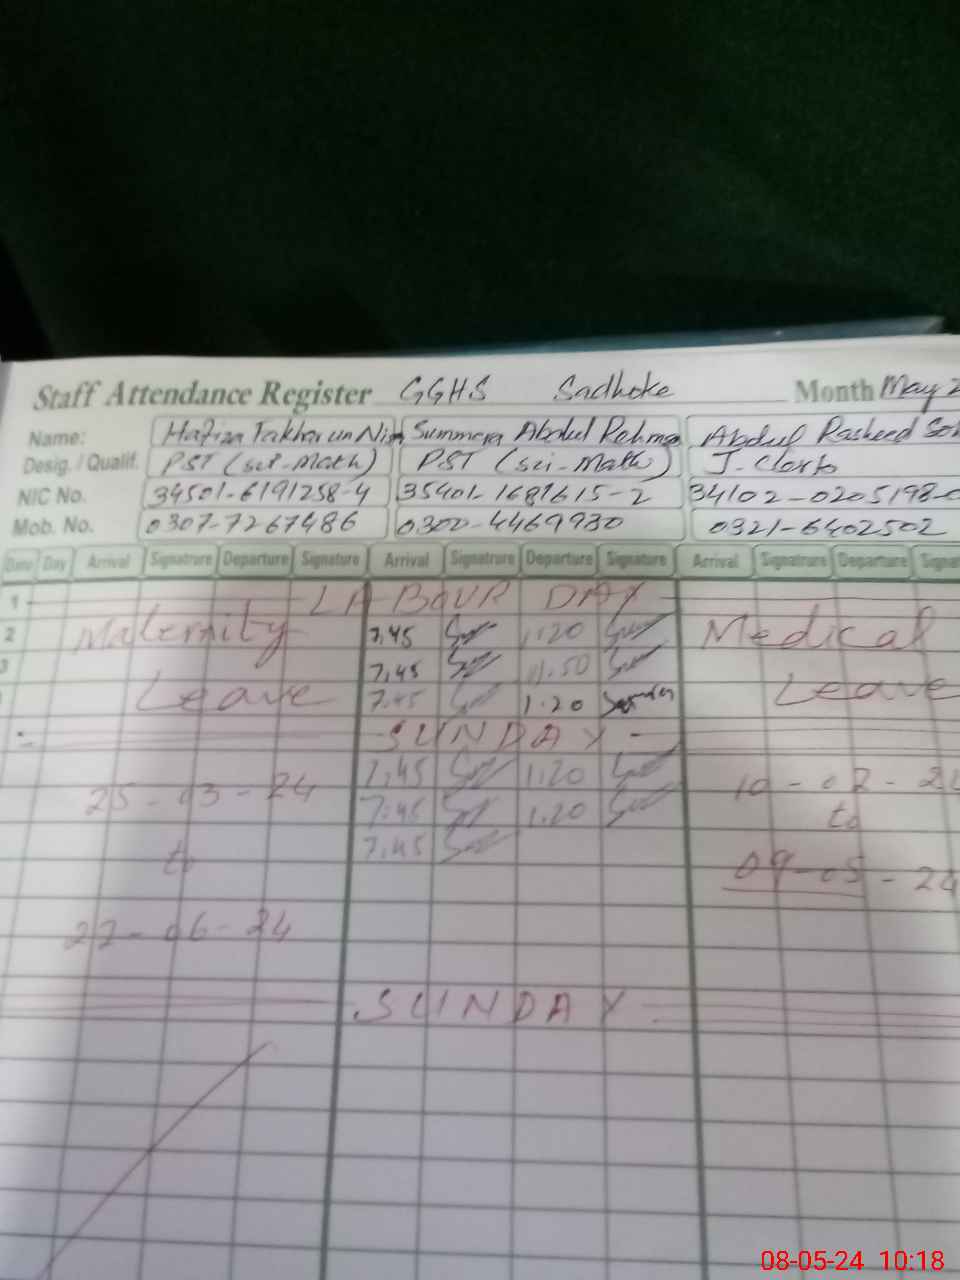 Staff Attendance Register GGHS Sadhoke Month May
Name: Hafiza Fakhar un Nisa Summera Abdul Rehman Abdul Rasheed
Desig. / Qualif. PST (sci-Math) PST (sci-Math) J-Clerk
NIC No. 34501-6191258-4 35401-1681615-2 34102-0205198-
Mob. No. 0307-7267486 0300-4469930 0321-6402502
Date Day Arrival Signatrure Departure Signature Arrival Signatrure Departure Signature Arrival Signatrure Departure
1 LABOUR DAY
2 Maternity 7.45 1.20 Medical
3 7.45 11.50
Leave 7.45 1.20 Leave
SUNDAY
7.45 1.20
25-03-24 7.45 1.20 10-02-24
to 7.45 to
09-05-24
22-06-24
SUNDAY
08-05-24 10:18